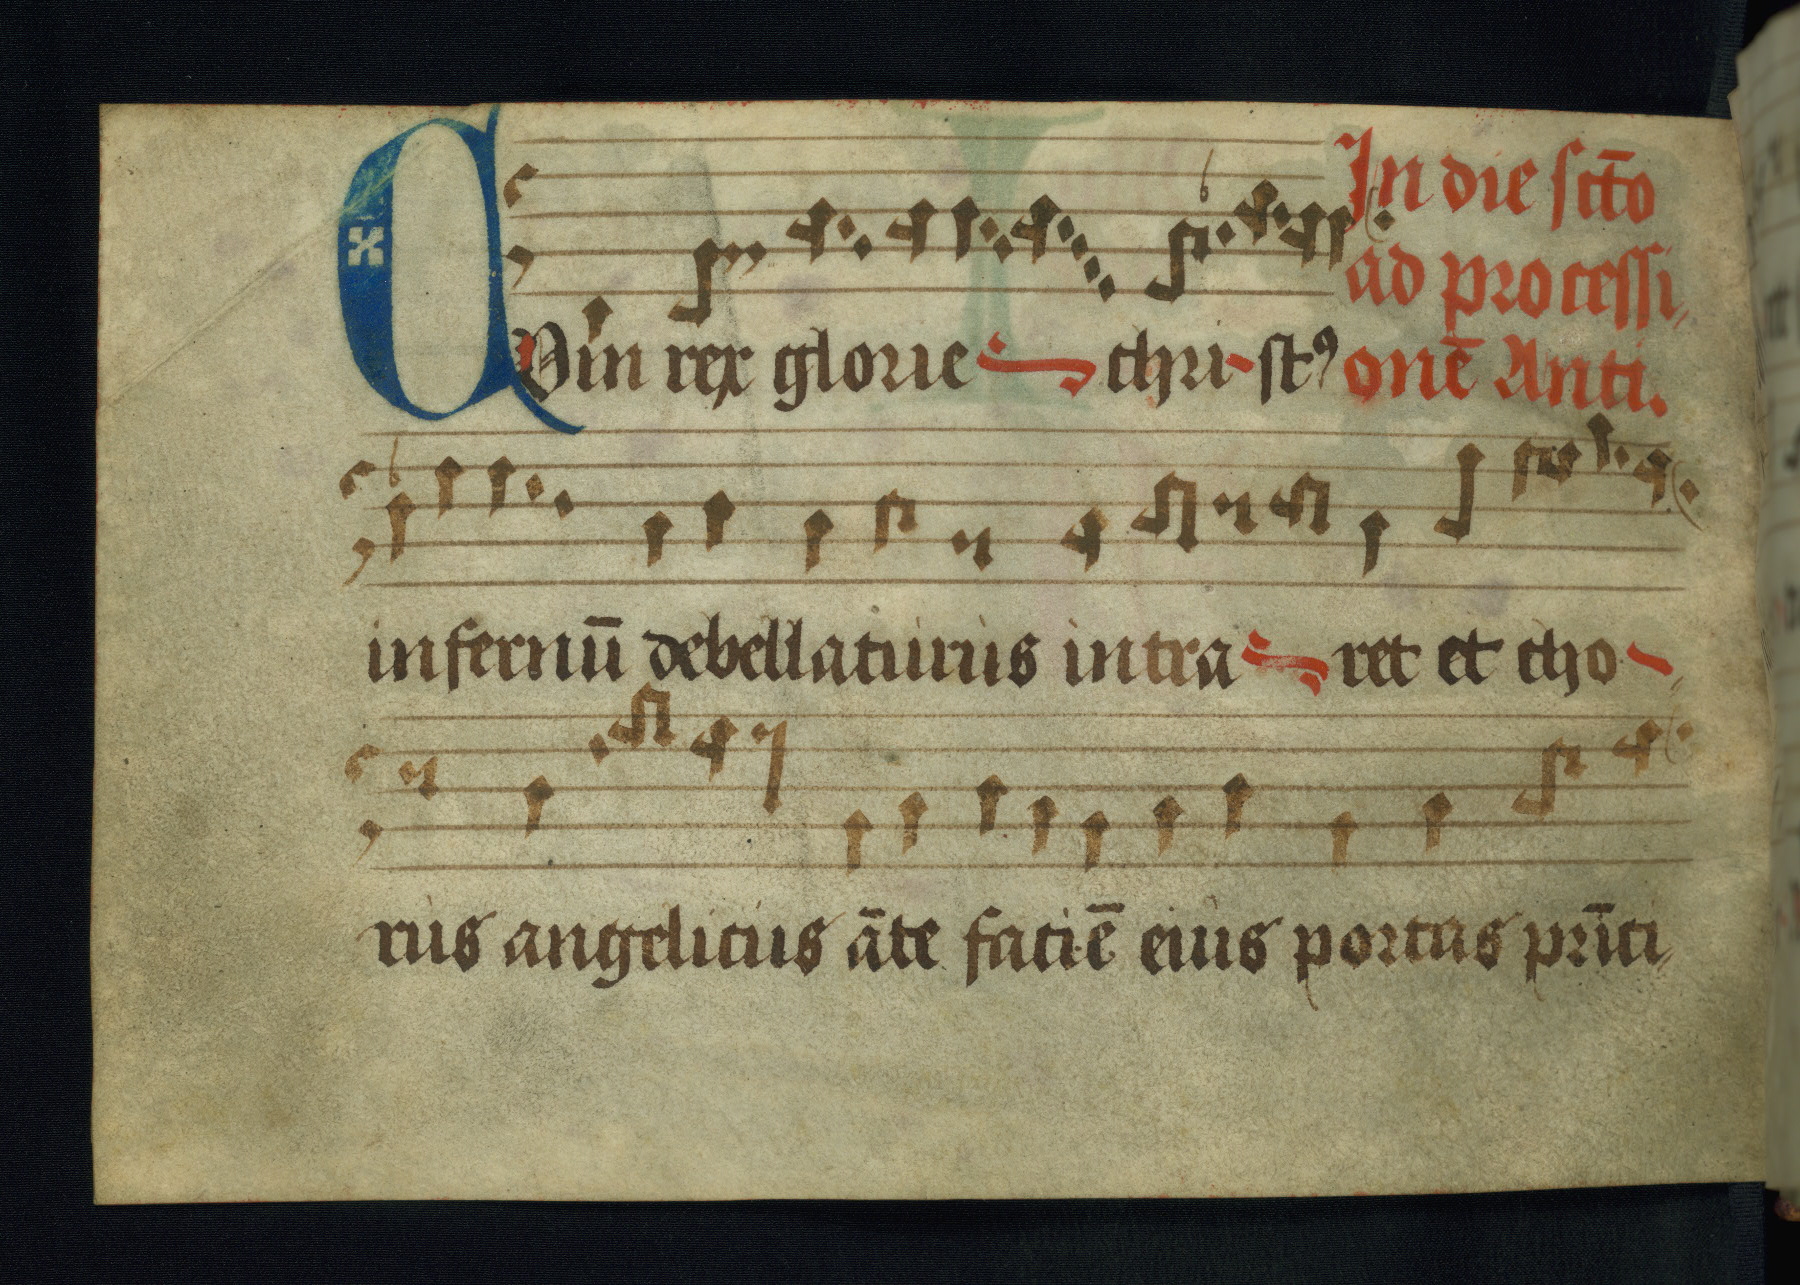 In die scto
ad processi
onē Anti.
QVm rex glorie chri-stꝰ
infernū debellaturus intra ret et cho
rus angelicus āte faciē eius portas prīci